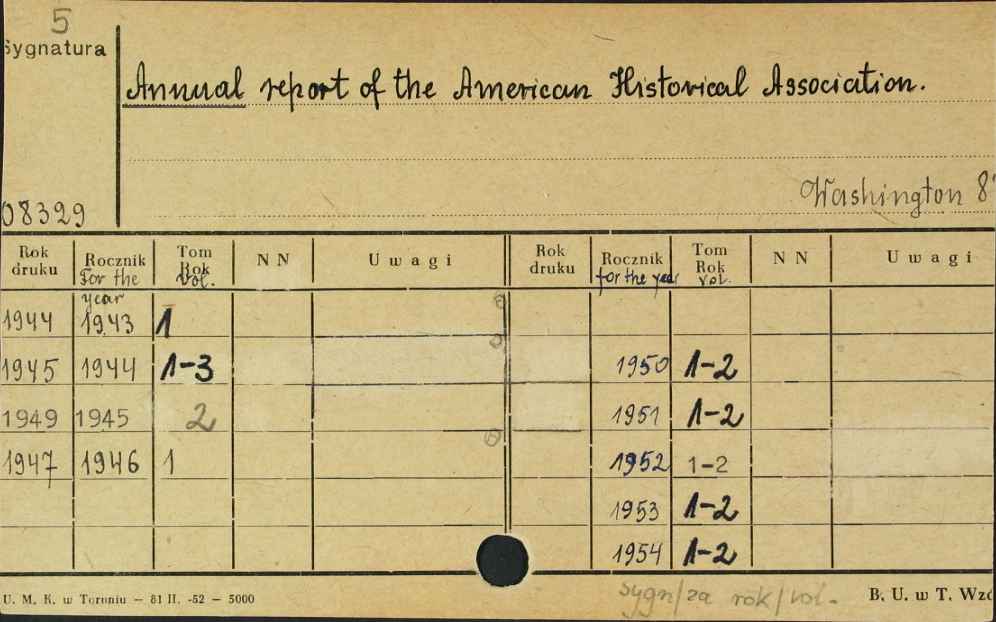 5
Sygnatura
Annual report of the American Historical Association.
Washington 8°
08329
Rok druku Rocznik For the year Tom Rok Vol. NN Uwagi Rok druku Rocznik for the year Tom Rok vol. NN Uwagi
1944 1943 1
1945 1944 1-3 1950 1-2
1949 1945 2 1951 1-2
1947 1946 1 1952 1-2
1953 1-2
1954 1-2
sygn/za rok/vol.
U. M. K. w Toruniu — 81 II. -52 — 5000 B. U. w T. Wzó